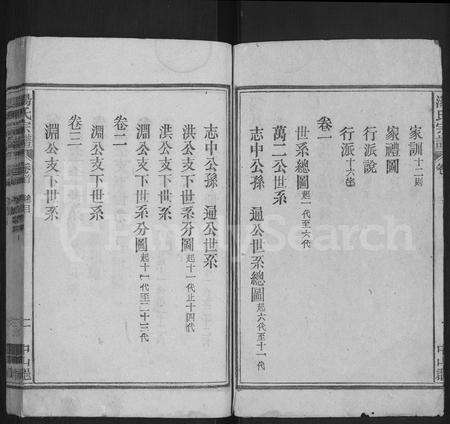 家訓十二則
家禮圖
行派說
行派十六字
卷一
世系總圖起一代至六代
萬二公世系
志中公孫 過公世系總圖起六代至十一代
志中公孫 過公世系
洪公支下世系分圖起十一代止十四代
洪公支下世系
淵公支下世系分圖起十一代至二十三代
卷二
淵公支下世系
卷三
淵公支下世系
FamilySearch